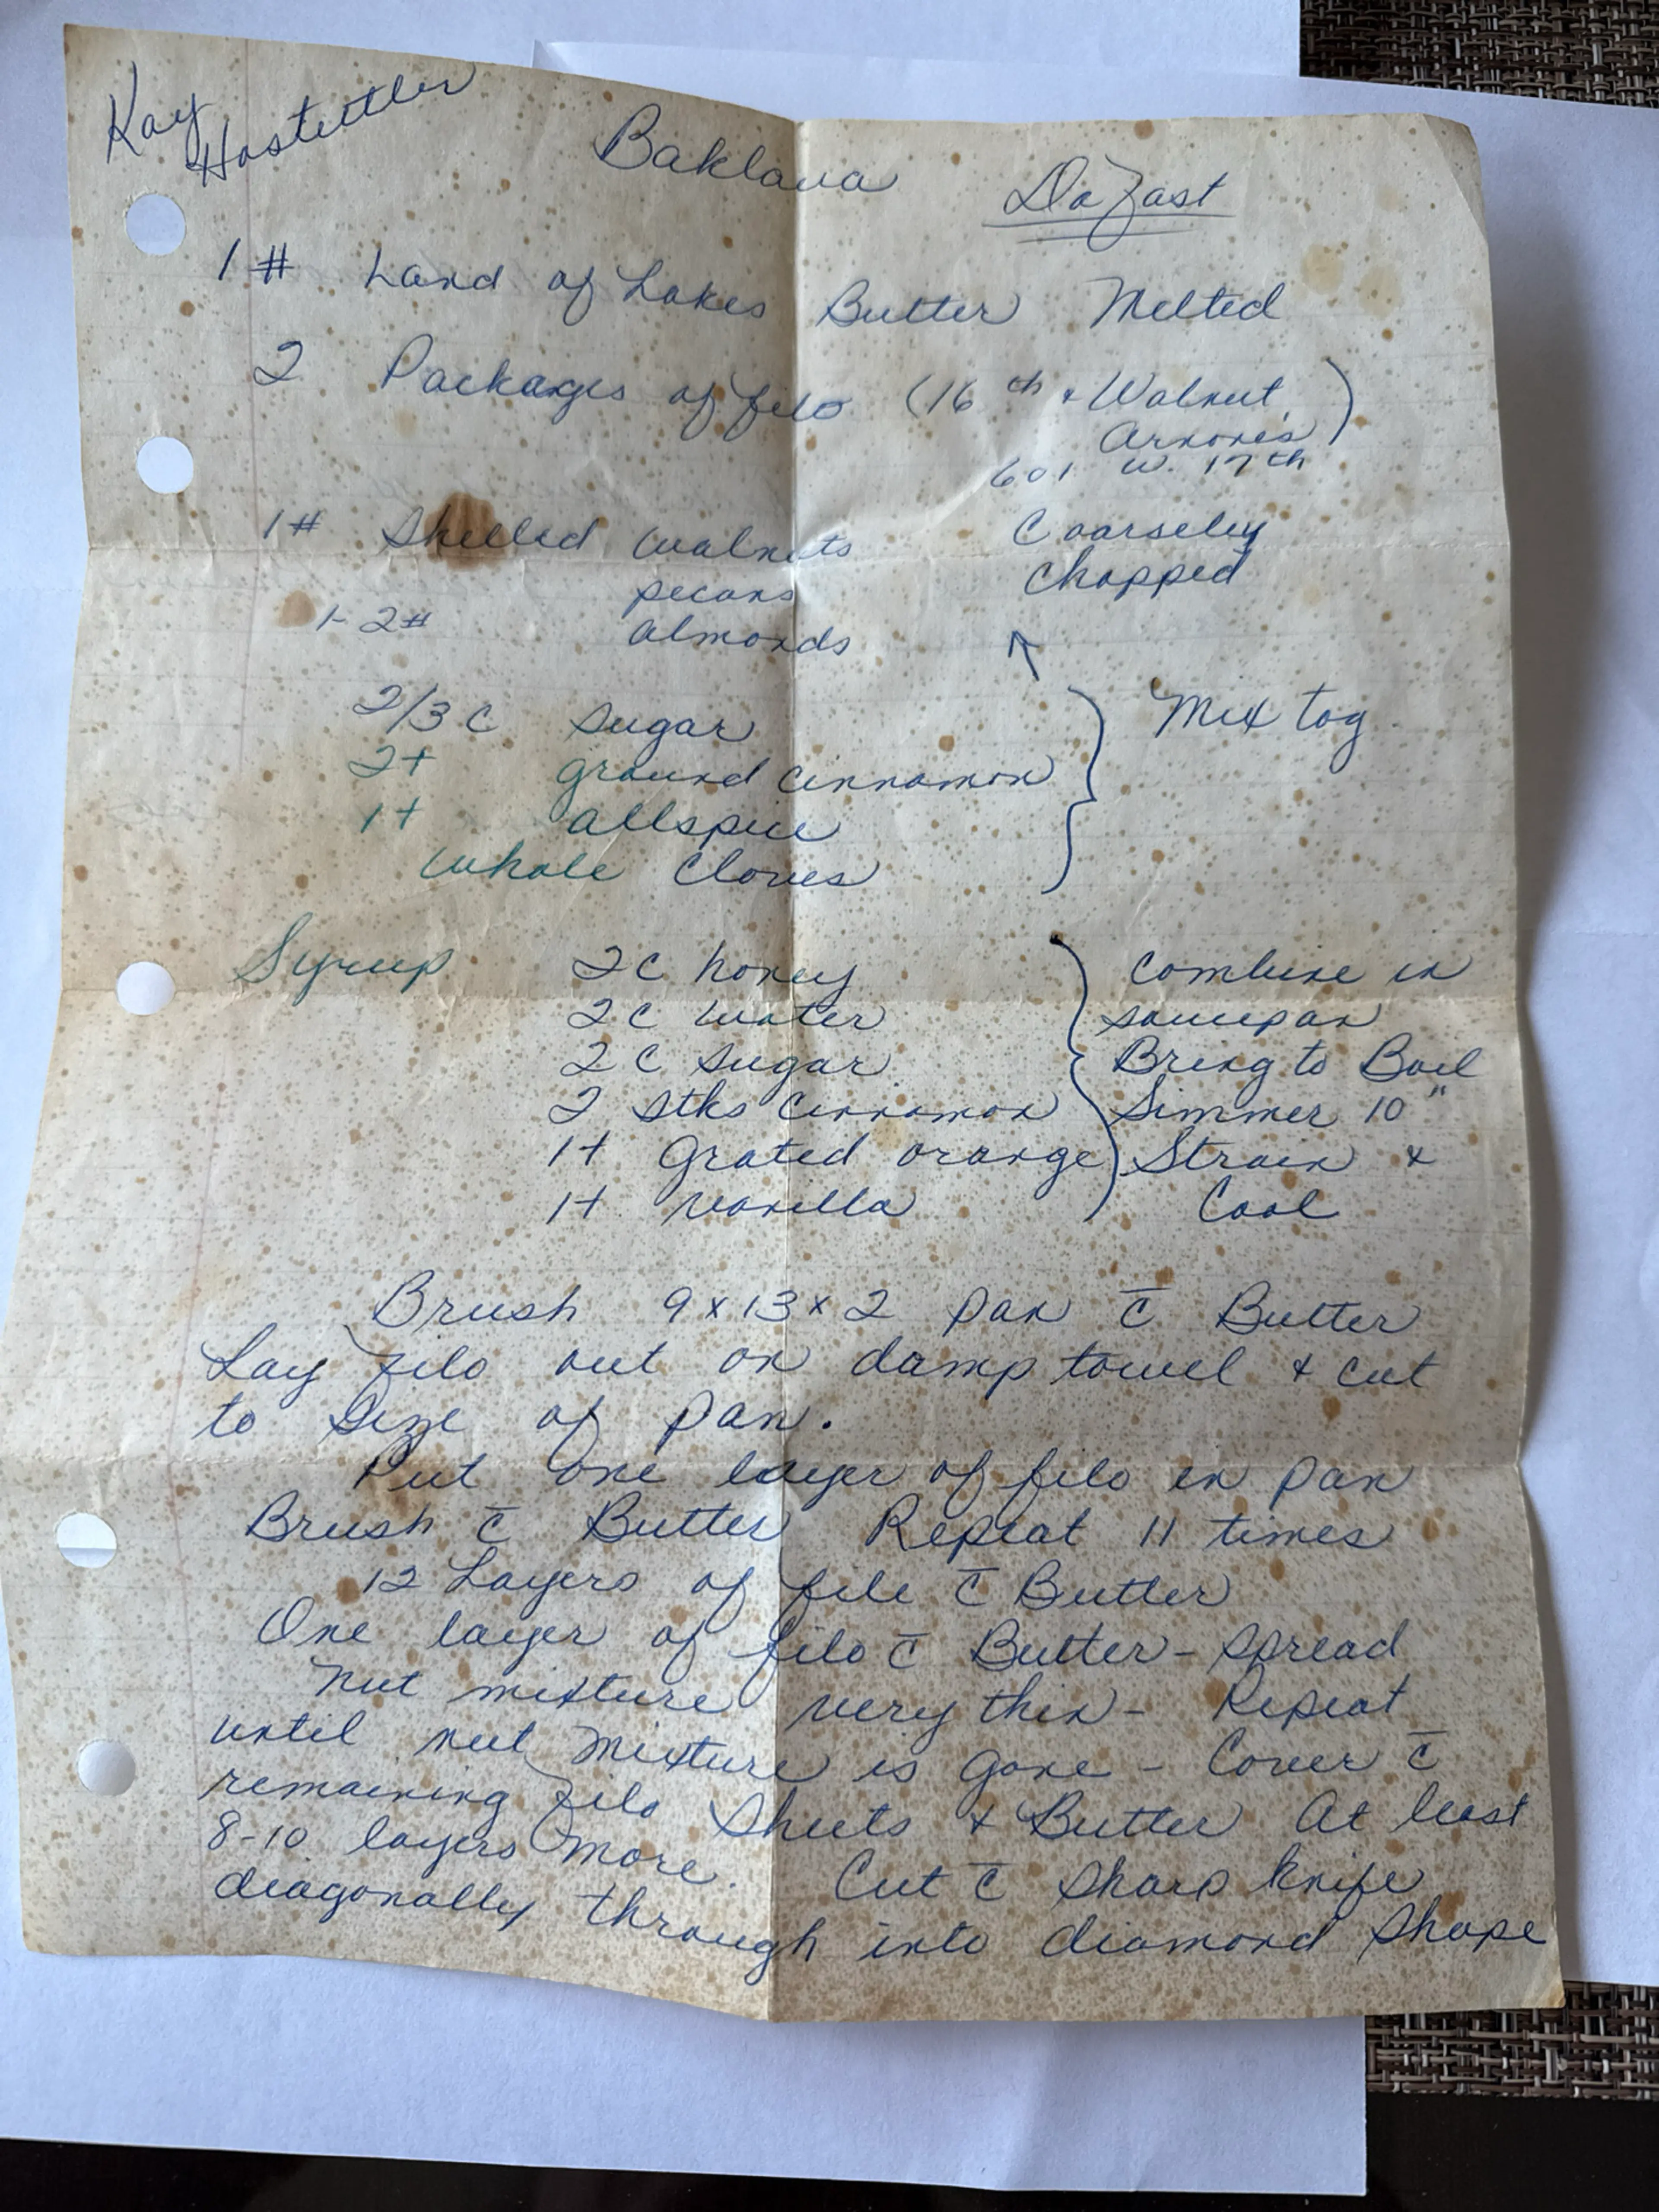 Kay Hostettler
Baklava
Do Fast
1# Land of Lakes Butter Melted
2 Packages of filo (16th + Walnut,
Arnones)
601 W. 17th
1# Shelled walnuts Coarseley
pecans chopped
1-2# almonds
2/3 C sugar Mix tog
2t ground cinnamon
1t allspice
whole Cloves
Syrup 2C honey Combine in
2C water saucepan
2C sugar Bring to Boil
2 stks cinnamon Simmer 10"
1t grated orange Strain &
1t vanilla Cool
Brush 9x13x2 pan c̄ Butter
Lay filo out on damp towel & cut
to size of pan.
Put one layer of filo in pan
Brush c̄ Butter Repeat 11 times
12 Layers of file c̄ Butter
One layer of filo c̄ Butter - spread
nut mixture very thin - Repeat
until nut mixture is gone - Cover c̄
remaining filo sheets & Butter At least
8-10 layers more. Cut c̄ sharp knife
diagonally through into diamond shape